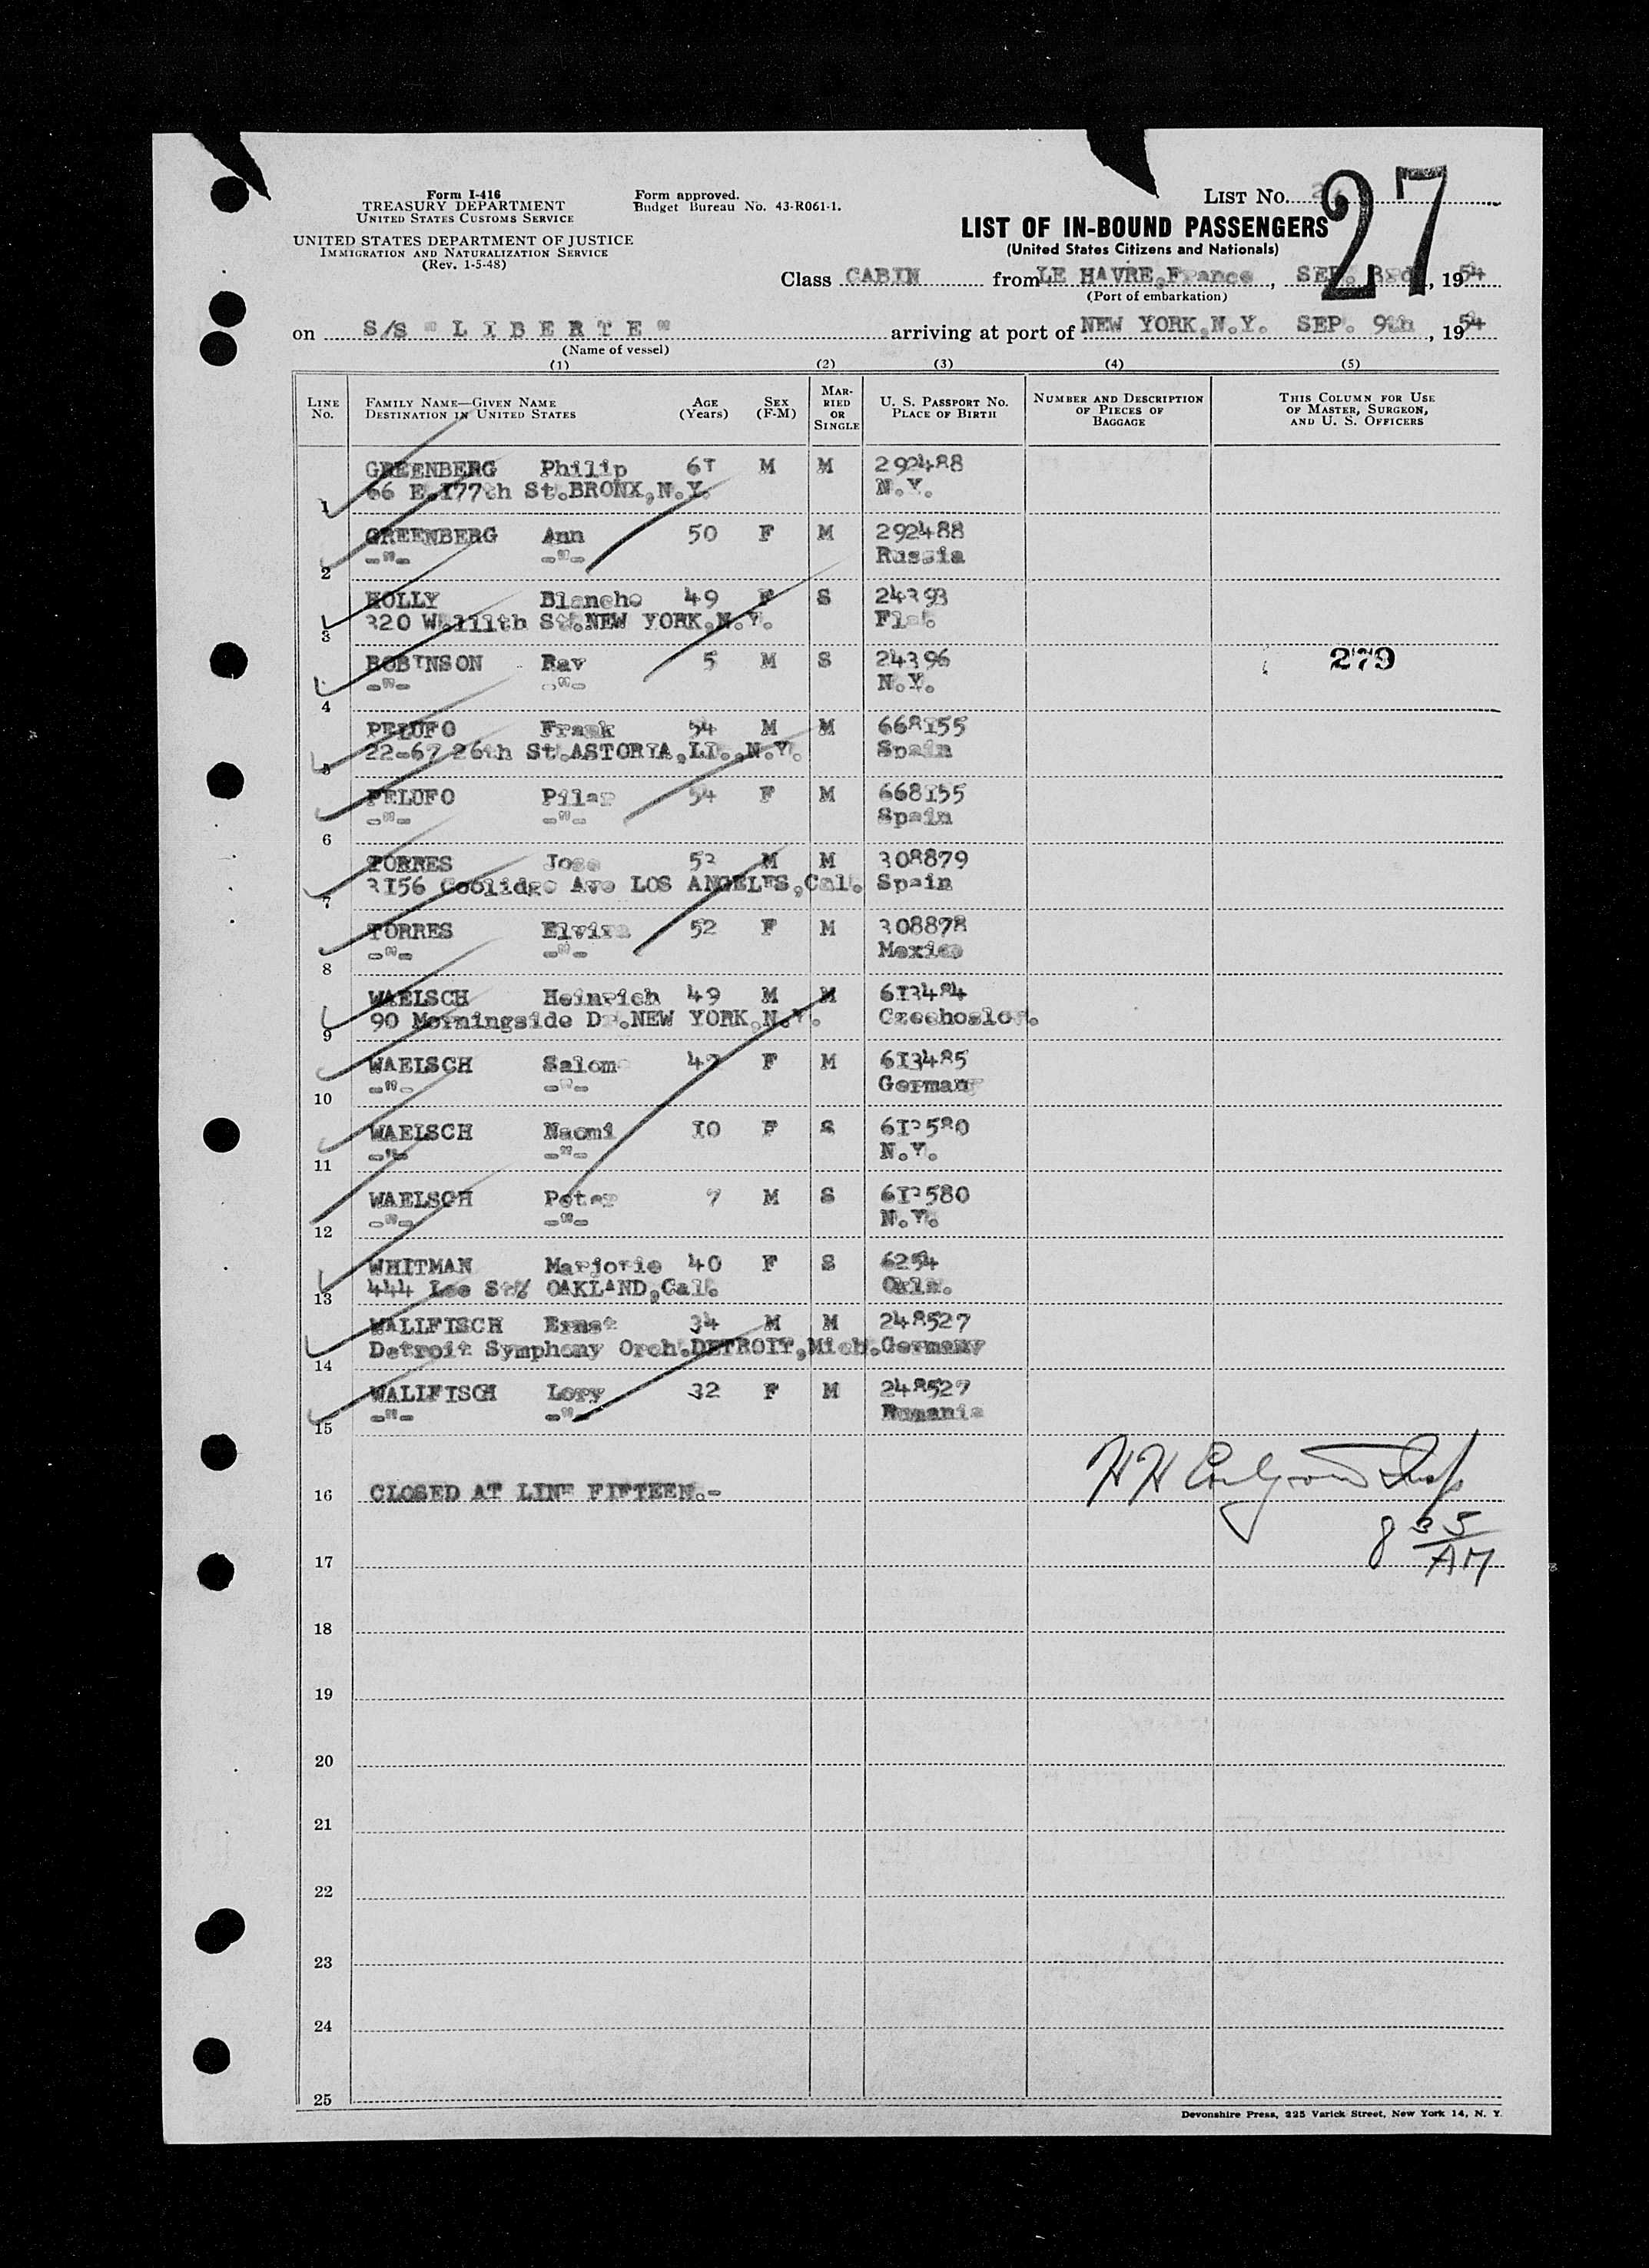 Form I-416
TREASURY DEPARTMENT
UNITED STATES CUSTOMS SERVICE
UNITED STATES DEPARTMENT OF JUSTICE
IMMIGRATION AND NATURALIZATION SERVICE
(Rev. 1-5-48)
Form approved.
Budget Bureau No. 43-R061-1.
LIST No. 27
LIST OF IN-BOUND PASSENGERS
(United States Citizens and Nationals)
Class CABIN from LE HAVRE,France, SEP. 3rd, 1954
(Port of embarkation)
on S/S "LIBERTE" arriving at port of NEW YORK,N.Y. SEP. 9th, 1954
(Name of vessel)
(1) (2) (3) (4) (5)
LINE No. FAMILY NAME—GIVEN NAME DESTINATION IN UNITED STATES AGE (Years) SEX (F-M) MARRIED OR SINGLE U. S. PASSPORT No. PLACE OF BIRTH NUMBER AND DESCRIPTION OF PIECES OF BAGGAGE THIS COLUMN FOR USE OF MASTER, SURGEON, AND U. S. OFFICERS
GREENBERG Philip 6I M M 292488
1 66 E.I77th St.BRONX,N.Y. N.Y.
GREENBERG Ann 50 F M 292488
2 -"- -"- Russia
HOLLY Blanche 49 F S 24393
3 320 W.111th St.NEW YORK,N.Y.
ROBINSON Ray 5 M S 24396 279
4 -"- -"- N.Y.
PELUFO Frank 54 M M 668I55
5 22-67 26th St.ASTORIA,LI.,N.Y. Spain
PELUFO Pilar 54 F M 668I55
6 -"- -"- Spain
TORRES Jose 52 M M 308879
7 3I56 Coolidge Ave LOS ANGELES,Cal. Spain
TORRES Elvira 52 F M 308878
8 -"- -"- Mexico
WAELSCH Heinrich 49 M M 6I3484
9 90 Morningside Dr.NEW YORK,N.Y. Czechoslov.
WAELSCH Salome F M 6I3485
10 -"- -"- Germany
WAELSCH Naomi I0 F S 6I2580
11 -"- -"- N.Y.
WAELSCH Peter 7 M S 6I2580
12 -"- -"- N.Y.
WHITMAN Marjorie 40 F S 6254
13 444 Lee St. OAKLAND,Cal. Okla.
WALLFISCH Ernst 34 M M 248527
14 Detroit Symphony Orch.DETROIT,Mich. Germany
WALLFISCH Lory 32 F M 248527
15 -"- -"- Rumania
16 CLOSED AT LINE FIFTEEN.-
8 35
AM
17
18
19
20
21
22
23
24
25
Devonshire Press, 225 Varick Street, New York 14, N. Y.